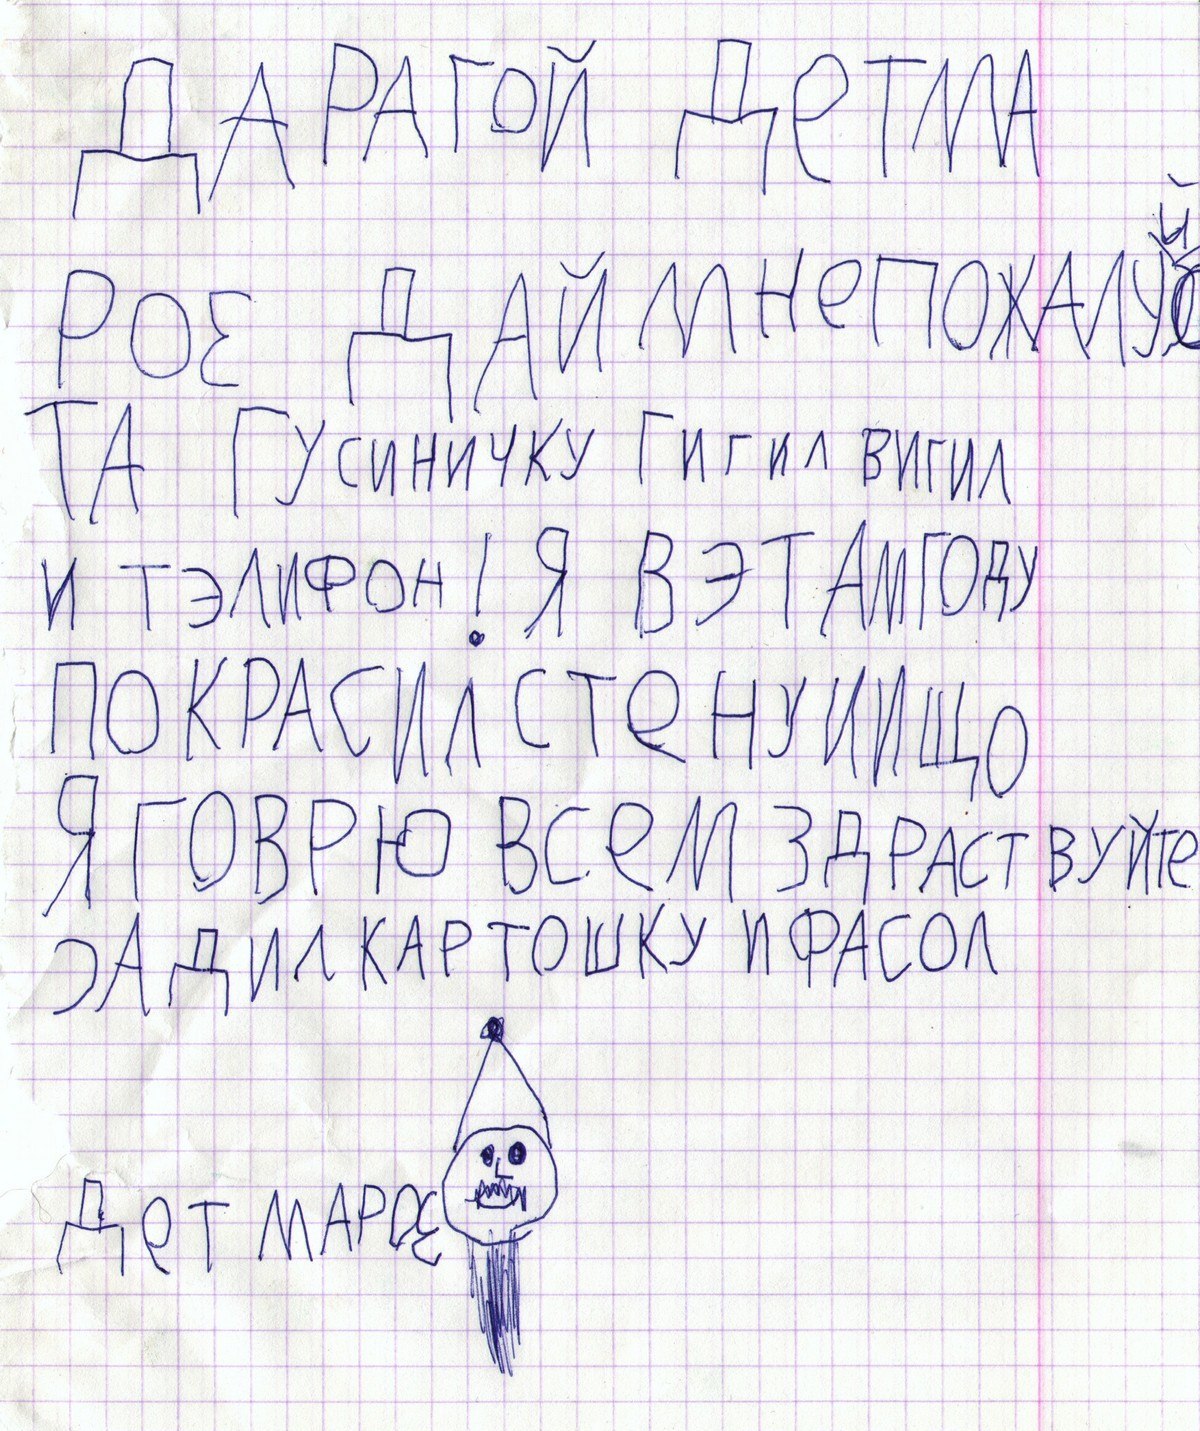 ДАРАГОЙ ДЕТМА
РОЗ ДАЙ МНЕПОЖАЛУЙС
ТА ГУСИНИЧКУ ГИГИЛ ВИГИЛ
И ТЭЛИФОН! Я В ЭТАМГОДУ
ПОКРАСИЛ СТЕНУ ИИЩО
Я ГОВРЮ ВСЕМ ЗДРАСТВУЙТЕ
ЗАДИЛ КАРТОШКУ И ФАСОЛ
ДЕТ МАРОЗ